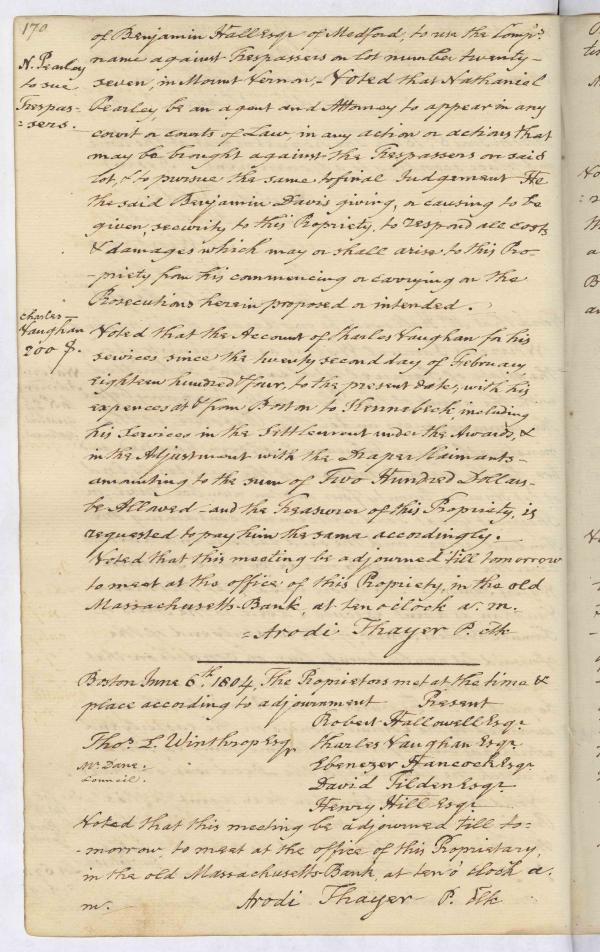 170
of Benjamin Hall Esqr of Medford, to use the Compys
N. Pearley
to sue
Trespas-
=sers.
name against Trespassers on lot number twenty-
seven, in Mount Vernon,- Voted that Nathaniel
Pearley, be an agent and Attorney to appear in any
court or courts of Law, in any action or actions that
may be brought against the Trespassers on said
lot, & to pursue the same to final Judgement He
the said Benjamin Davis giving, or causing to be
given, security to this Propriety, to respond all costs
& damages which may or shall arise to this Pro-
-priety from his commencing or carrying on the
Prosecutions herein proposed or intended.
Charles
Vaughan
200 $.
Voted that the Account of Charles Vaughan for his
services since the twenty second day of February
eighteen hundred & four, to the present date, with his
expences from Boston to Kennebeck, including
his services in the Settlement under the Awards, &
in the Adjustment with the Draper Claimants-
amounting to the sum of Two Hundred Dollars-
be Allowed - and the Treasurer of this Propriety, is
requested to pay him the same accordingly.
Voted that this meeting be adjourned till tomorrow
to meet at the office of this Propriety, in the old
Massachusetts Bank, at ten o'clock a. m.
=Arodi Thayer P. Clk
Boston June 6th 1804, The Proprietors met at the time &
place according to adjournment Present
Robert Hallowell Esqr
Thos L. Winthrop Esqr Charles Vaughan Esqr
Mr Dane. Ebenezer Hancock Esqr
Council. David Tilden Esqr
Henry Hill Esqr
Voted that this meeting be adjourned till to-
-morrow, to meet at the office of this Propriety,
in the old Massachusetts Bank, at ten o' clock a.
m. Arodi Thayer P. Clk